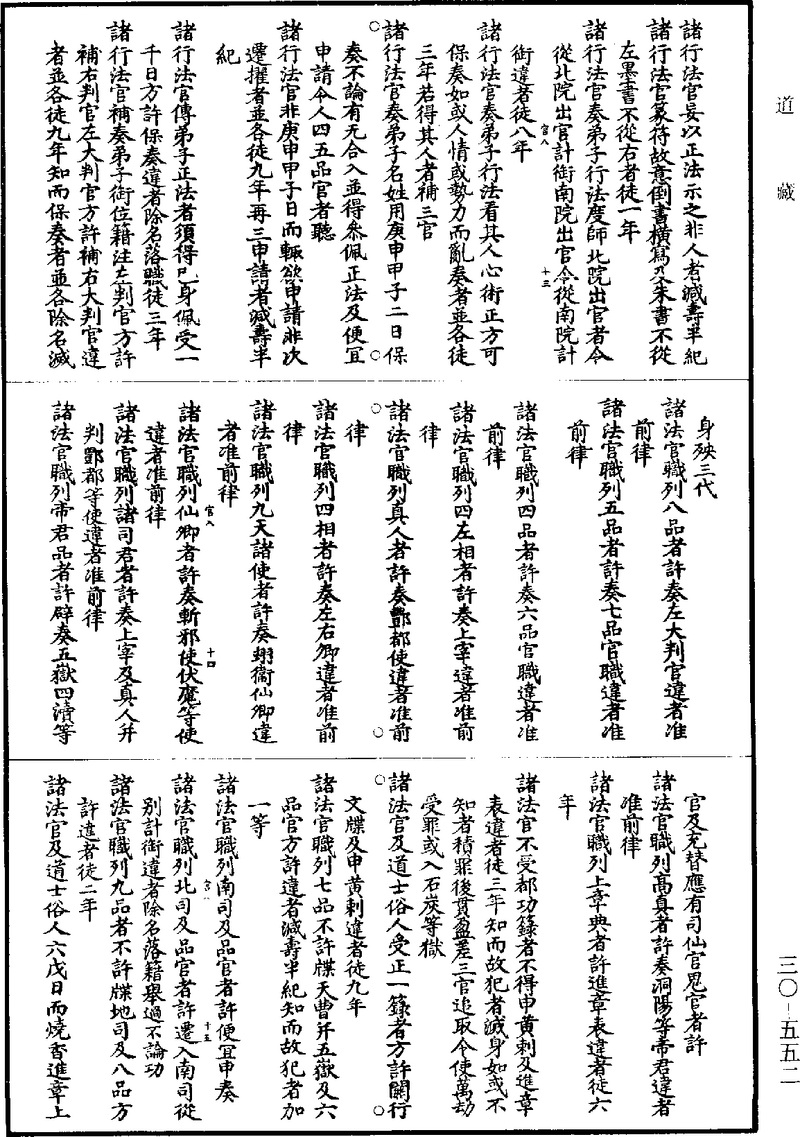 道藏
三〇-五五二
諸行法官妄以正法示之非人者減壽半紀
諸行法官篆符故意倒書橫寫及朱書不從
左墨書不從右者徒一年
諸行法官奏弟子行法度師北院出官者令
從北院出官計銜南院出官令從南院計
銜違者徒八年
官八
十三
諸行法官奏弟子行法看其人心術正方可
保奏如或人情或勢力而亂奏者並各徒
三年若得其人者補三官
諸行法官奏弟子名姓用庚申甲子二日保
奏不論有无合入並得叅佩正法及便宜
申請令人四五品官者聽
諸行法官非庚申甲子日而輒欲申請非次
遷擢者並各徒九年再三申請者減壽半
紀
諸行法官傳弟子正法者須得已身佩受一
千日方許保奏違者除名落職徒三年
諸行法官補奏弟子銜位籍注左判官方許
補右判官左大判官方許補右大判官違
者並各徒九年知而保奏者並各除名滅
身殃三代
諸法官職列八品者許奏左大判官違者准
前律
諸法官職列五品者許奏七品官職違者准
前律
諸法官職列四品者許奏六品官職違者准
前律
諸法官職列四左相者許奏上宰違者准前
律
諸法官職列真人者許奏酆都使違者准前
律
諸法官職列四相者許奏左右卿違者准前
律
諸法官職列九天諸使者許奏翊衞仙卿違
者准前律
諸法官職列仙卿者許奏斬邪使伏魔等使
官八
十四
違者准前律
諸法官職列諸司君者許奏上宰及真人并
判酆都等使違者准前律
諸法官職列帝君品者許辟奏五嶽四瀆等
官及充替應有司仙官鬼官者許
諸法官職列高真者許奏洞陽等帝君違者
准前律
諸法官職列上章典者許進章表違者徒六
年
諸法官不受都功籙者不得申黃刺及進章
表違者徒三年知而故犯者滅身如或不
知者積罪後貫盈差三官追取令使萬劫
受罪或入石炭等獄
諸法官及道士俗人受正一籙者方許關行
文牒及申黃刺違者徒九年
諸法官職列七品不許牒天曹并五嶽及六
品官方許違者減壽半紀知而故犯者加
一等
諸法官職列南司及品官者許便宜申奏
諸法官職列北司及品官者許遷入南司從
十五
別計銜違者除名落籍舉過不論功
諸法官職列九品者不許牒地司及八品方
許違者徒二年
諸法官及道士俗人六戊日而燒香進章上